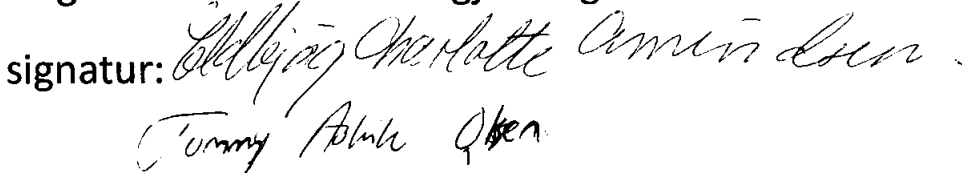 signatur: Eldbjørg Charlotte Amundsen
Tommy Olsen